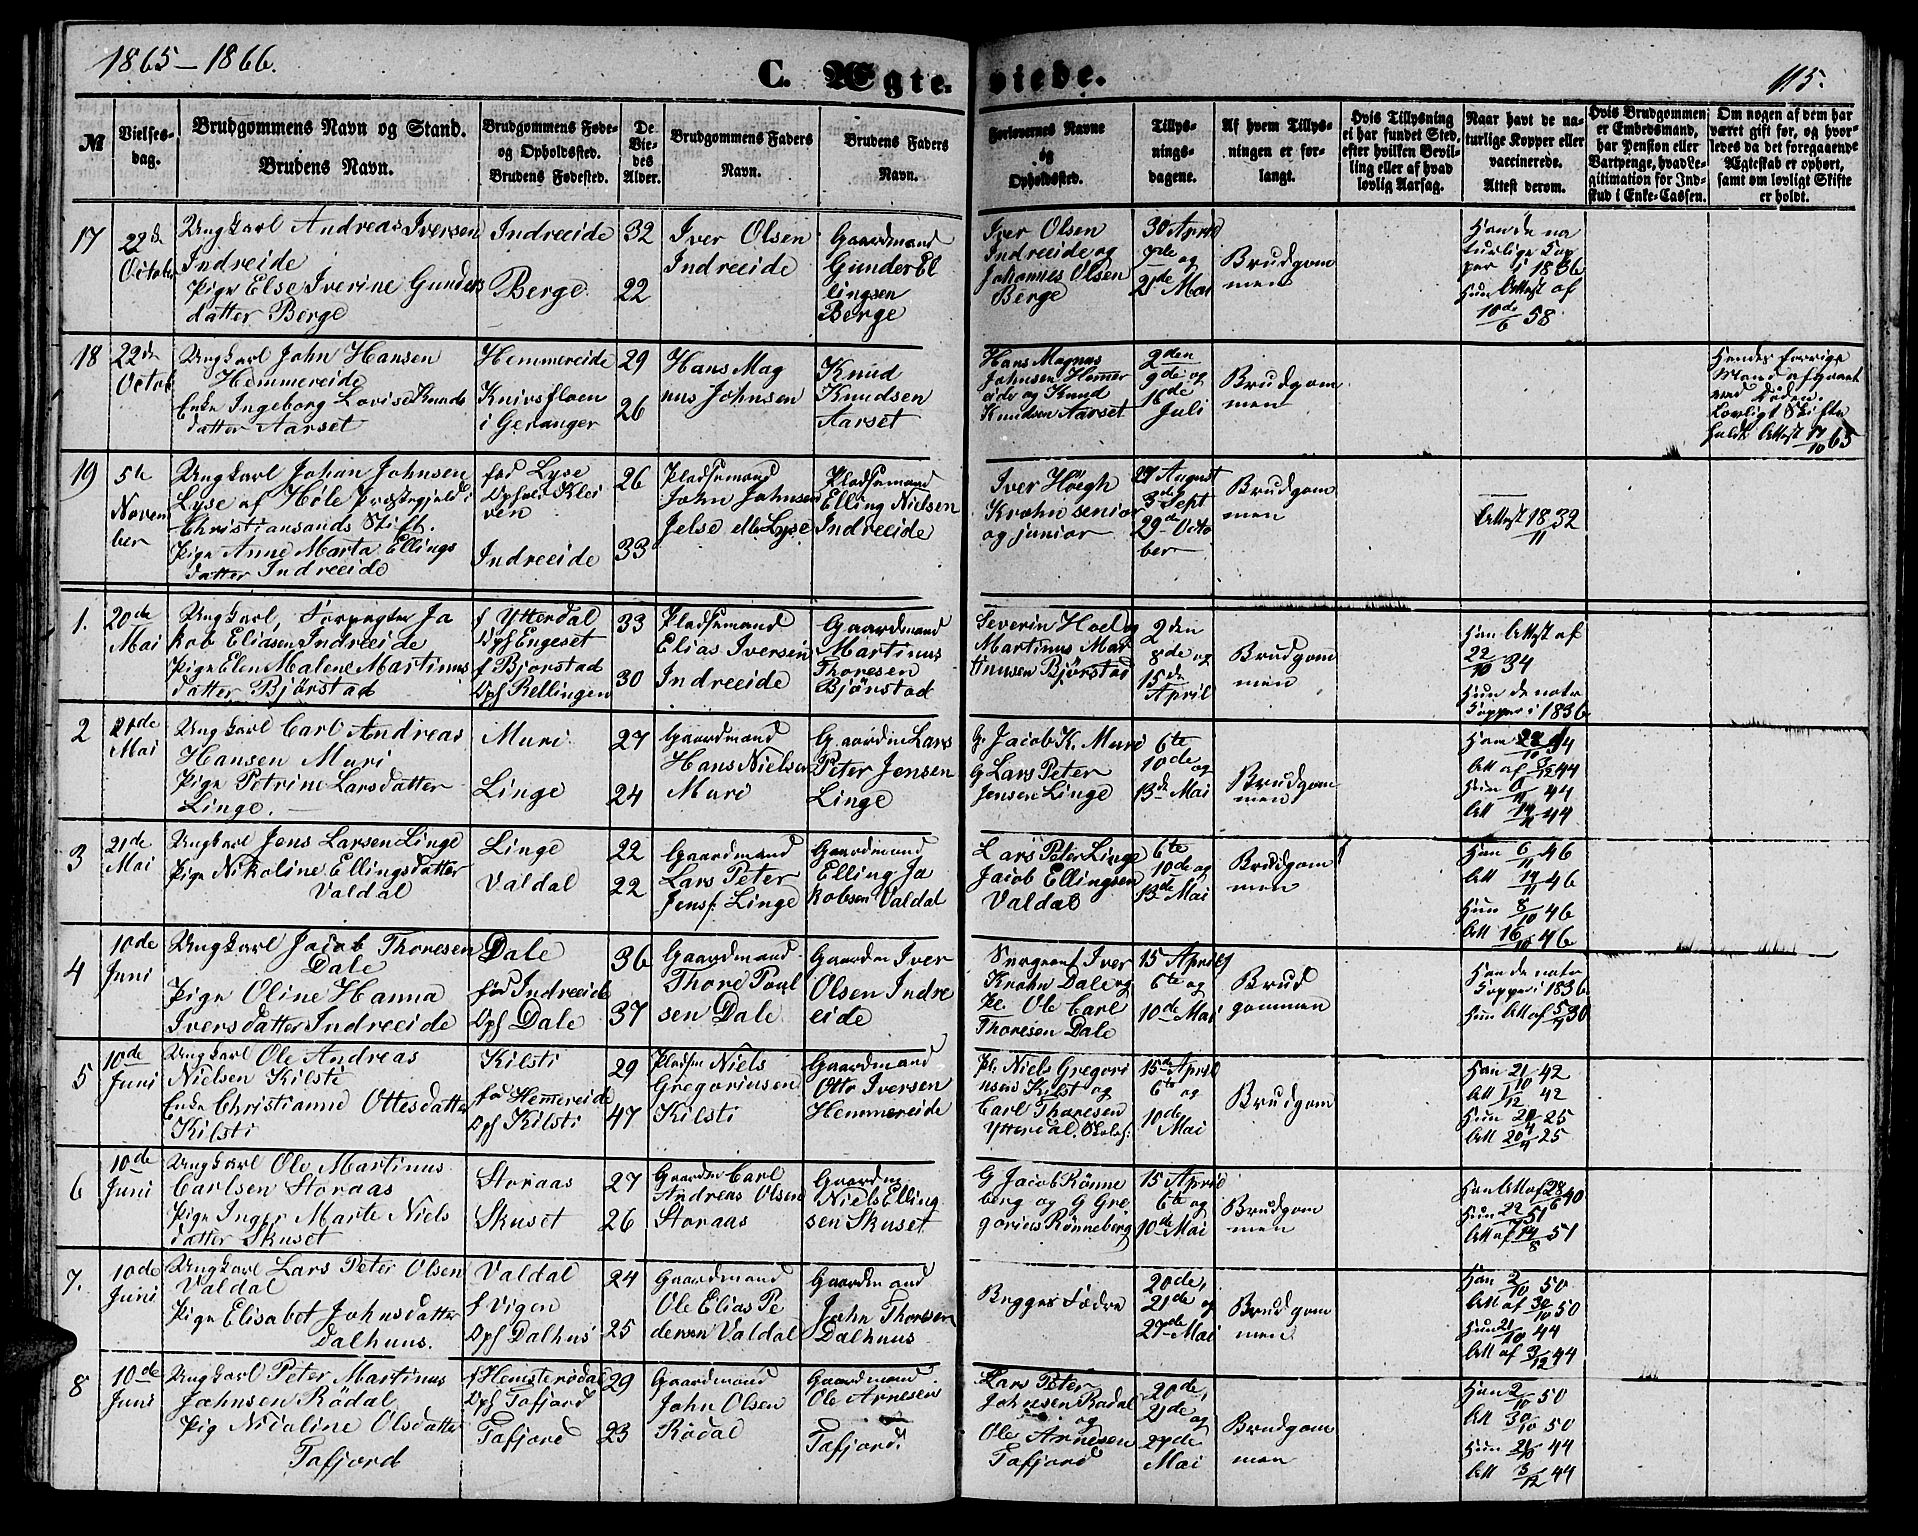 1865-1866.
C. Ægte-viede.
115.
№
Vielses-
dag.
Brudgommens Navn og Stand.
Brudens Navn.
Brudgommens Føde-
og Opholdssted.
Brudens Fødested.
De
Vie-
des
Alder.
Brudgommens Faders
Navn.
Brudens Faders
Navn.
Forlovernes Navne
og
Opholdssted.
Tillys-
nings-
dagene.
Af hvem Tillys-
ningen er for-
langt.
Hvis Tillysning
ei har fundet Sted,
efter hvilken Bevil-
ling eller af hvad
lovlig Aarsag.
Naar havt de na-
turlige Kopper eller
vaccinerede.
Attest derom.
Hvis Brudgommen
er Embedsmand,
har Pension eller
Vartpenge, hvad Le-
gitimation for Ind-
skud i Enke-Cassen.
Om nogen af dem har
været gift før, og hvor-
ledes da det foregaaende
Ægteskab er ophørt,
samt om lovligt Skifte
er holdt.
17
22de
October
Ungkarl Andreas Iversen
Indreeide
Pige Else Iverine Gunders
datter Berge
Indreeide
Berge
32
22
Iver Olsen
Indreeide
Gaardmand
Gunder El
lingsen
Berge
Iver Olsen
Indreeide og
Johannes Olsen
Berge
30 April
7de og
21de Mai
Brudgom
men
Han de na
turlige Kop
per i 1836
Hun Attest af
10de/6 58
18
22de
Octob
Ungkarl John Hansen
Hemmereide
Enke Ingeborg Lovise Knuds
datter Aarset
Hemmereide
Knivsfloen
i Geranger
29
26
Hans Mag
nus Johnsen
Knud
Knudsen
Aarset
Hans Magnus
Johnsen Hemmer
eide og Knud
Knudsen Aarset
2den
9de og
16de
Juli
Brudgom
men
Hendes forrige
Mand afgaaet
ved Døden.
Lovligt Skifte
holdt Attest 17/10 65
19
5te
Novem
ber
Ungkarl Johan Johnsen
Lyse af Høle Præstegjeld i
Christiansands Stift.
Pige Anne Marta Ellings
datter Indreeide
fød Lyse
Oph ved Klei
ven
Indreeide
26
33
Pladsemand
John Johnsen
Jelse eller Lyse
Pladsemand
Elling Nielsen
Indreeide
Iver Høegh
Krohn senior
og junior
27 August
3de Sept
29de Octo
ber
Brudgom
men
Attest 18/11 32
1.
20de
Mai
Ungkarl, Forpagter Ja
kob Eliasen Indreeide
Pige Elen Malene Martinus
datter Bjørstad
f Ytterdal
Oph Engeset
f Bjørstad
Oph Rellingen
33
30
Pladsemand
Elias Iversen
Indreeide
Gaardmand
Martinus
Thoresen
Bjørstad
Severin Hoel og
Martinus Mar
tinusen Bjørstad
2den
8de og
15de
April
Brudgom
men
Han Attest af
22/10 34
Hun de natur
Kopper i 1836
2
21de
Mai
Ungkarl Carl Andreas
Hansen Muri
Pige Petrine Larsdatter
Linge.
Muri
Linge
27
24
Gaardmand
Hans Nielsen
Muri
Gaardm Lars
Peter Jensen
Linge
G. Jacob K. Muri
G Lars Peter
Jensen Linge
6te
10de og
13de Mai
Brudgom
men
3
21de
Mai
Ungkarl Jens Larsen Linge
Pige Nikoline Ellingsdatter
Valdal
Linge
Valdal
22
22
Gaardmand
Lars Peter
Jens. Linge
Gaardmand
Elling Ja
kobsen Valdal
Lars Peter Linge
Jacob Ellingsen
Valdal
6te
10de og
13de Mai
Brudgom
men
Han 6/11 46
Att 14/11 46
Hun 8/10 46
Att 16/10 46
4
10de
Juni
Ungkarl Jacob Thoresen
Dale
Pige Oline Hanna
Iversdatter Indreeide
Dale
fød Indreeide
Oph Dale
36
37
Gaardmand
Thore Poul
sen Dale
Gaardm Iver
Olsen Indre
eide
Sergeant Iver
Krohn Dale og
Pl. Ole Carl
Thoresen Dale
15 April
6te og
10de Mai
Brud
gommen
Han de natur
Kopper i 1836
Hun Att af 5/7 30
5
10de
Juni
Ungkarl Ole Andreas
Nielsen Kilsti
Enke Christianne Ottesdatter
Kilsti
Kilsti
fød Hemmereide
Oph Kilsti
29
47
Pladsm Niels
Gregoriusen
Kilsti
Gaardmand
Otto Iversen
Hemmereide
Pl. Niels Gregori
usen Kilsti og
Carl Thoresen
Ytterdal.
15de April
6te og
10de
Mai
Brudgom
Han 21/10 42
Att 1/12 42
Hun 20/4 25
Att 20/4 25
6
10de
Juni
Ungkarl Ole Martinus
Carlsen Storaas
Pige Inger Marte Niels
datter Skuset
Storaas
Skuset
27
26
Gaardm Carl
Andreas Olsen
Storaas
Gaardm
Niels Elling
sen Skuset
G Jacob Rønne
berg og G Gre
gorius Rønneberg
15 April
6te og
10de Mai
Brudgom
men
Han Att af 28/6 40
Hun 22/7 51
Att af 14/8 51
7.
10de
Juni
Ungkarl Lars Peter Olsen
Valdal
Pige Elisabet Johnsdatter
Dalhuus.
Valdal
f Vigen
Oph Dalhus
24
25
Gaardmand
Ole Elias Pe
dersen Valdal
Gaardmand
John Thoresen
Dalhuus
Begges Fædre
20de,
21de og
27de Mai
Brudgom
men
Han 2/10 50
Att af 30/10 50
Hun 21/10 44
Att af 3/12 44
8
10de
Juni
Ungkarl Peter Martinus
Johnsen Rødal
Pig Nicoline Olsdatter
Tafjord
Oph Tafjord
Tafjord
29
23
Gaardmand
John Olsen
Rødal
Gaardmand
Ole Arnesen
Tafjord.
Lars Peter
Johnsen Rødal
og
Ole Arnesen
Tafjord
20de,
21de og
27de
Mai
Brudgom
men
Han 2/10 50
Att 30/10 50
Hun 21/10 44
Att 3/12 44